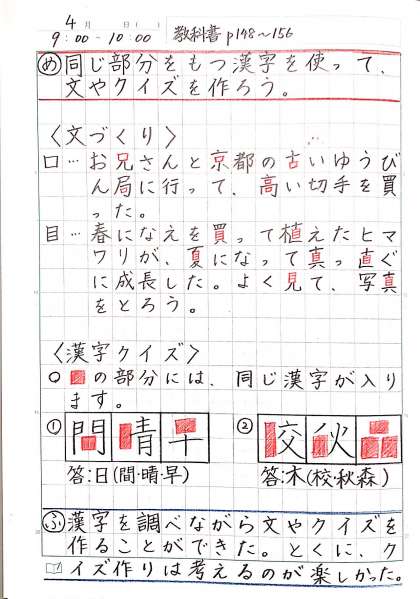 4月 日( )
9:00-10:00 教科書p148~156
め 同じ部分をもつ漢字を使って、
文やクイズを作ろう。
〈文づくり〉
口…お兄さんと京都の古いゆうび
ん局に行って、高い切手を買
った。
目…春になえを買って植えたヒマ
ワリが、夏になって真っ直ぐ
に成長した。よく見て、写真
をとろう。
〈漢字クイズ〉
○ の部分には、同じ漢字が入り
ます。
① 門 青 十 ②
答:日(間・晴・早) 答:木(校・秋・森)
ふ 漢字を調べながら文やクイズを
作ることができた。とくに、ク
イズ作りは考えるのが楽しかった。